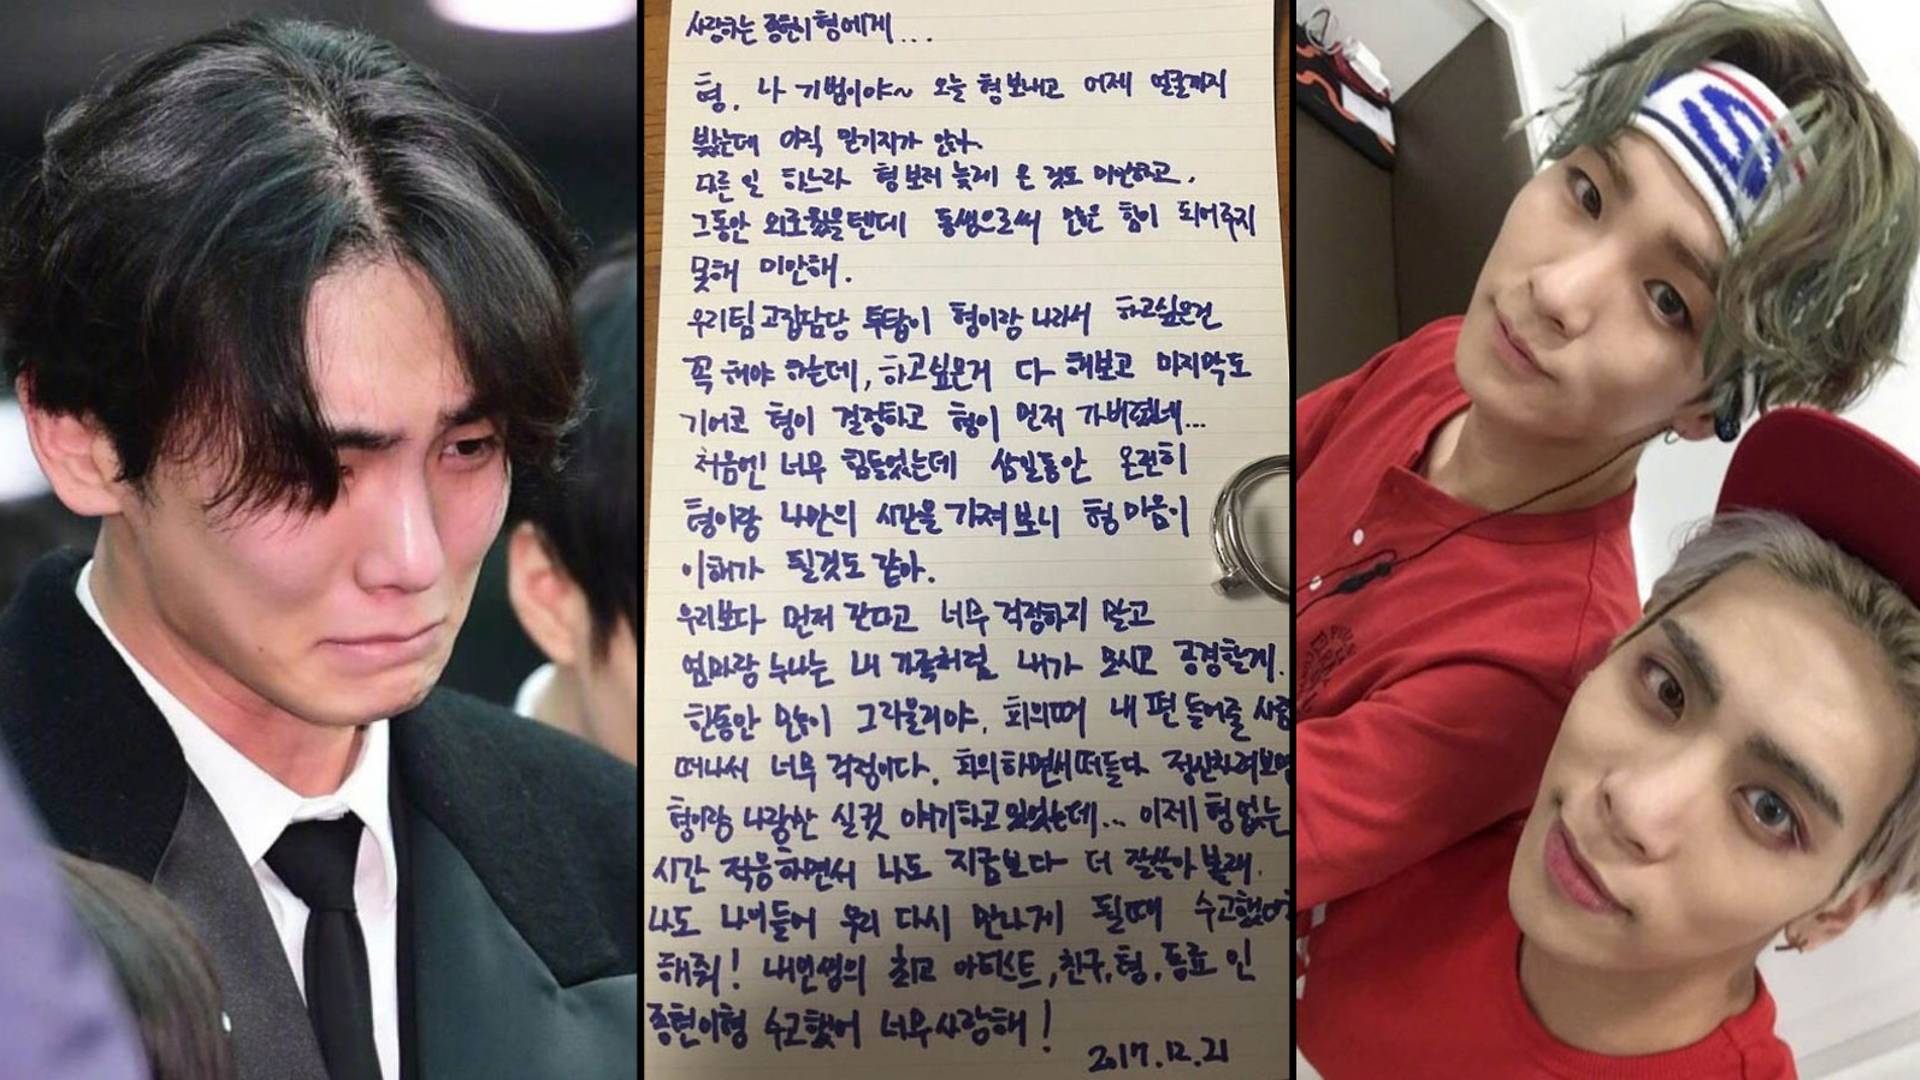 사랑하는 종현이형에게...
형. 나 기범이야~ 오늘 형보내고 어제 얼굴까지
봤는데 아직 믿기지가 않아.
다른 일 하느라 형보러 늦게 온 것도 미안하고,
그동안 외로웠을텐데 동생으로써 많은 힘이 되어주지
못해 미안해.
우리팀 고집담당 투탑이 형이랑 나라서 하고싶은건
꼭 해야 하는데, 하고싶은거 다 해보고 마지막도
기어코 형이 결정하고 형이 먼저 가버렸네...
처음엔 너무 힘들었는데 삼일동안 온전히
형이랑 나만의 시간을 가져보니 형 마음이
이해가 될것도 같아.
우리보다 먼저 간다고 너무 걱정하지 말고
엄마랑 누나는 내 가족처럼 내가 모시고 공경할게.
한동안 많이 그리울거야, 회의때 내 편 들어줄 사람
떠나서 너무 걱정이다. 회의하면서 떠들다 정신차려보면
형이랑 나랑만 실컷 얘기하고 있었는데... 이제 형 없는
시간 적응하면서 나도 지금보다 더 잘살아 볼래.
나도 나이들어 우리 다시 만나게 될때 수고했어
해줘! 내인생의 최고 아티스트, 친구, 형, 동료 인
종현이형 수고했어 너무사랑해!
2017.12.21